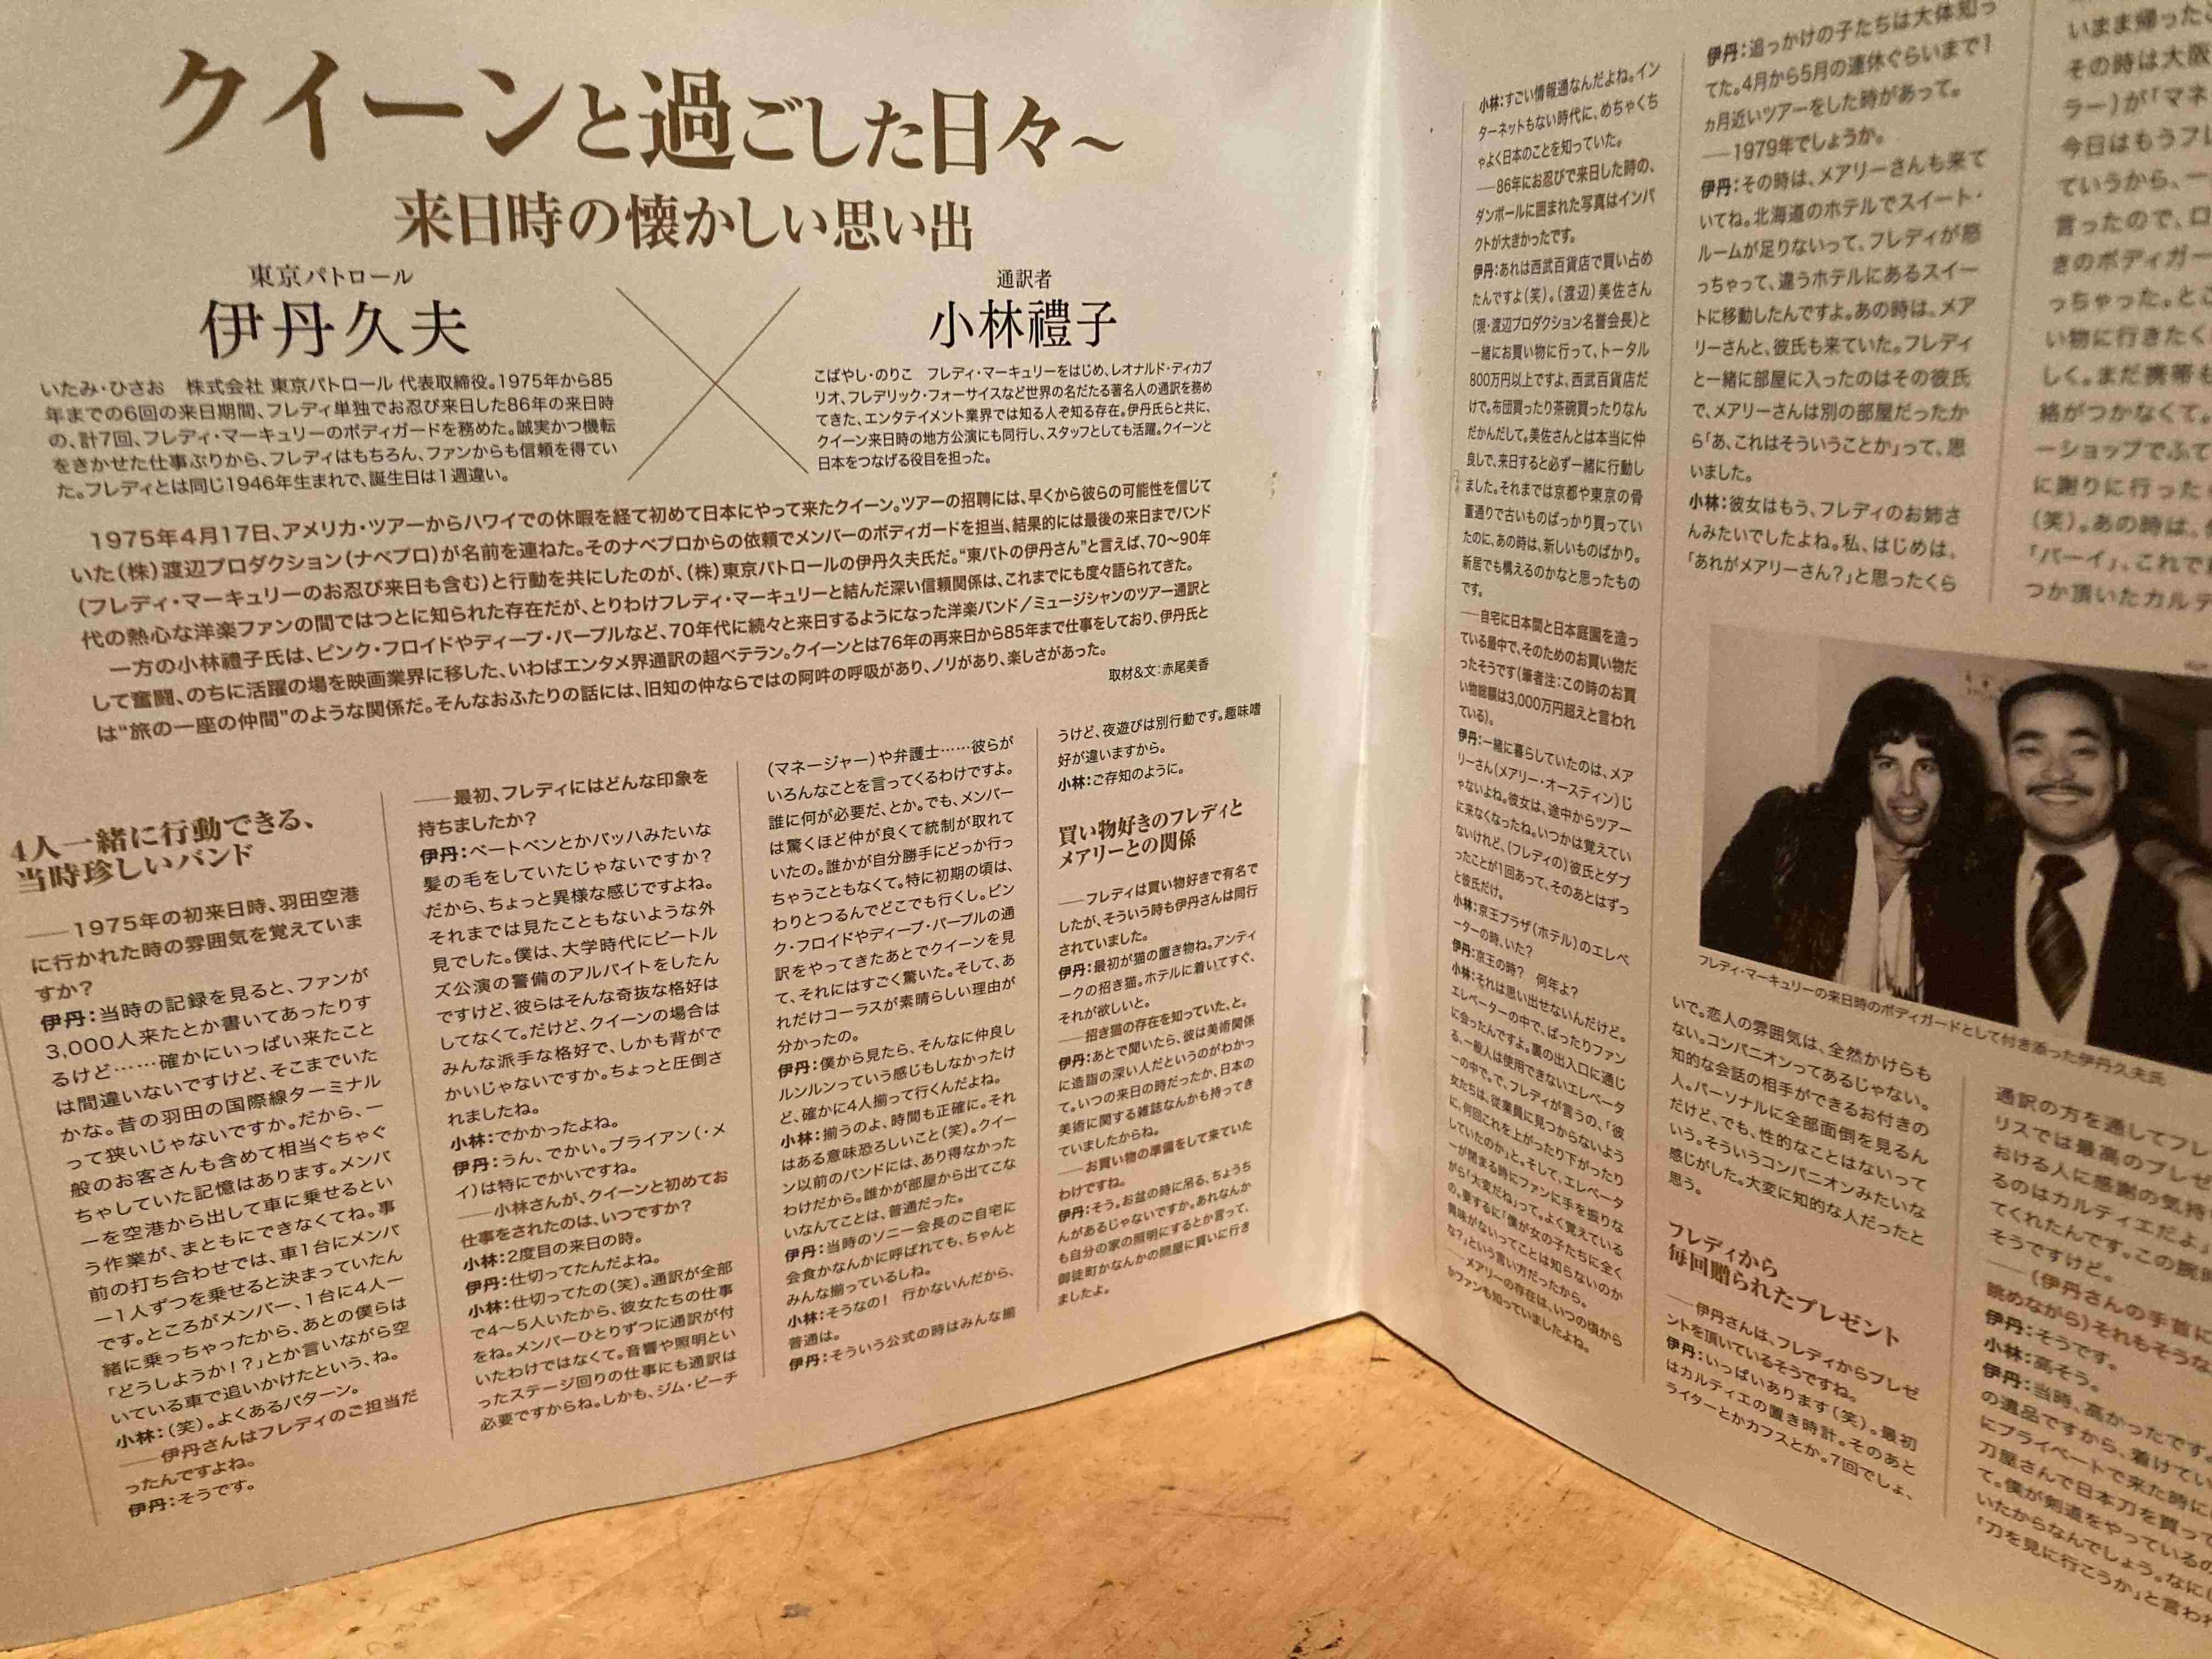 クイーンと過ごした日々～
来日時の懐かしい思い出
東京パトロール
伊丹久夫
いたみ・ひさお　株式会社 東京パトロール 代表取締役。1975年から85
年までの6回の来日期間、フレディ単独でお忍び来日した86年の来日時
の、計7回、フレディ・マーキュリーのボディガードを務めた。誠実かつ機転
をきかせた仕事ぶりから、フレディはもちろん、ファンからも信頼を得てい
た。フレディとは同じ1946年生まれで、誕生日は1週違い。
通訳者
小林禮子
こばやし・のりこ　フレディ・マーキュリーをはじめ、レオナルド・ディカプ
リオ、フレデリック・フォーサイスなど世界の名だたる著名人の通訳を務め
てきた、エンタテイメント業界では知る人ぞ知る存在。伊丹氏らと共に、
クイーン来日時の地方公演にも同行し、スタッフとしても活躍。クイーンと
日本をつなげる役目を担った。
1975年4月17日、アメリカ・ツアーからハワイでの休暇を経て初めて日本にやって来たクイーン。ツアーの招聘には、早くから彼らの可能性を信じて
いた（株）渡辺プロダクション（ナベプロ）が名前を連ねた。そのナベプロからの依頼でメンバーのボディガードを担当、結果的には最後の来日までバンド
（フレディ・マーキュリーのお忍び来日も含む）と行動を共にしたのが、（株）東京パトロールの伊丹久夫氏だ。“東パトの伊丹さん”と言えば、70～90年
代の熱心な洋楽ファンの間ではつとに知られた存在だが、とりわけフレディ・マーキュリーと結んだ深い信頼関係は、これまでにも度々語られてきた。
一方の小林禮子氏は、ピンク・フロイドやディープ・パープルなど、70年代に続々と来日するようになった洋楽バンド／ミュージシャンのツアー通訳と
して奮闘、のちに活躍の場を映画業界に移した、いわばエンタメ界通訳の超ベテラン。クイーンとは76年の再来日から85年まで仕事をしており、伊丹氏と
は“旅の一座の仲間”のような関係だ。そんなおふたりの話には、旧知の仲ならではの阿吽の呼吸があり、ノリがあり、楽しさがあった。
取材＆文：赤尾美香
4人一緒に行動できる、
当時珍しいバンド
──1975年の初来日時、羽田空港
に行かれた時の雰囲気を覚えていま
すか？
伊丹：当時の記録を見ると、ファンが
3,000人来たとか書いてあったりす
るけど……確かにいっぱい来たこと
は間違いないですけど、そこまでいた
かな。昔の羽田の国際線ターミナル
って狭いじゃないですか。だから、一
般のお客さんも含めて相当ぐちゃぐ
ちゃしていた記憶はあります。メンバ
ーを空港から出して車に乗せるとい
う作業が、まともにできなくてね。事
前の打ち合わせでは、車1台にメンバ
ー1人ずつを乗せると決まっていたん
です。ところがメンバー、1台に4人一
緒に乗っちゃったから、あとの僕らは
「どうしようか！？」とか言いながら空
いている車で追いかけたという、ね。
小林：（笑）。よくあるパターン。
──伊丹さんはフレディのご担当だ
ったんですよね。
伊丹：そうです。
──最初、フレディにはどんな印象を
持ちましたか？
伊丹：ベートベンとかバッハみたいな
髪の毛をしていたじゃないですか？
だから、ちょっと異様な感じですよね。
それまでは見たこともないような外
見でした。僕は、大学時代にビートル
ズ公演の警備のアルバイトをしたん
ですけど、彼らはそんな奇抜な格好は
してなくて。だけど、クイーンの場合は
みんな派手な格好で、しかも背がで
かいじゃないですか。ちょっと圧倒さ
れましたね。
小林：でかかったよね。
伊丹：うん、でかい。ブライアン（・メ
イ）は特にでかいですね。
──小林さんが、クイーンと初めてお
仕事をされたのは、いつですか？
小林：2度目の来日の時。
伊丹：仕切ってたんだよね。
小林：仕切ってたの（笑）。通訳が全部
で4～5人いたから、彼女たちの仕事
をね。メンバーひとりずつに通訳が付
いたわけではなくて。音響や照明とい
ったステージ回りの仕事にも通訳は
必要ですからね。しかも、ジム・ビーチ
（マネージャー）や弁護士……彼らが
いろんなことを言ってくるわけですよ。
誰に何が必要だ、とか。でも、メンバー
は驚くほど仲が良くて統制が取れて
いたの。誰かが自分勝手にどっか行っ
ちゃうこともなくて。特に初期の頃は、
わりとつるんでどこでも行くし。ピン
ク・フロイドやディープ・パープルの通
訳をやってきたあとでクイーンを見
て、それにはすごく驚いた。そして、あ
れだけコーラスが素晴らしい理由が
分かったの。
伊丹：僕から見たら、そんなに仲良し
ルンルンっていう感じもしなかったけ
ど、確かに4人揃って行くんだよね。
小林：揃うのよ、時間も正確に。それ
はある意味恐ろしいこと（笑）。クイー
ン以前のバンドには、あり得なかった
わけだから。誰かが部屋から出てこな
いなんてことは、普通だった。
伊丹：当時のソニー会長のご自宅に
会食かなんかに呼ばれても、ちゃんと
みんな揃っているしね。
小林：そうなの！　行かないんだから、
普通は。
伊丹：そういう公式の時はみんな揃
うけど、夜遊びは別行動です。趣味嗜
好が違いますから。
小林：ご存知のように。
買い物好きのフレディと
メアリーとの関係
──フレディは買い物好きで有名で
したが、そういう時も伊丹さんは同行
されていました。
伊丹：最初が猫の置き物ね。アンティ
ークの招き猫。ホテルに着いてすぐ、
それが欲しいと。
──招き猫の存在を知っていた、と。
伊丹：あとで聞いたら、彼は美術関係
に造詣の深い人だというのがわかっ
て。いつの来日の時だったか、日本の
美術に関する雑誌なんかも持ってき
ていましたからね。
──お買い物の準備をして来ていた
わけですね。
伊丹：そう。お盆の時に吊る、ちょうち
んがあるじゃないですか。あれなんか
も自分の家の照明にするとか言って、
御徒町かなんかの問屋に買いに行き
ましたよ。
小林：すごい情報通なんだよね。イン
ターネットもない時代に、めちゃくち
ゃよく日本のことを知っていた。
──86年にお忍びで来日した時の、
ダンボールに囲まれた写真はインパ
クトが大きかったです。
伊丹：あれは西武百貨店で買い占め
たんですよ（笑）。（渡辺）美佐さん
（現・渡辺プロダクション名誉会長）と
一緒にお買い物に行って、トータル
800万円以上ですよ、西武百貨店だ
けで。布団買ったり茶碗買ったりなん
だかんだして。美佐さんとは本当に仲
良しで、来日すると必ず一緒に行動し
ました。それまでは京都や東京の骨
董通りで古いものばっかり買ってい
たのに、あの時は、新しいものばかり。
新居でも構えるのかなと思ったもの
です。
──自宅に日本間と日本庭園を造っ
ている最中で、そのためのお買い物だ
ったそうです（筆者注：この時のお買
い物総額は3,000万円超えと言われ
ている）。
伊丹：一緒に暮らしていたのは、メア
リーさん（メアリー・オースティン）じ
ゃないよね。彼女は、途中からツアー
に来なくなったね。いつかは覚えてい
ないけれど、（フレディの）彼氏とダブ
ったことが1回あって、そのあとはずっ
と彼氏だけ。
小林：京王プラザ（ホテル）のエレベ
ーターの時、いた？
伊丹：京王の時？　何年よ？
小林：それは思い出せないんだけど。
エレベーターの中で、ばったりファン
に会ったんですよ。裏の出入口に通じ
る、一般人は使用できないエレベータ
ーの中で。で、フレディが言うの、「彼
女たちは、従業員に見つからないよう
に、何回これを上がったり下がったり
していたのか」と。そして、エレベータ
ーが閉まる時にファンに手を振りな
がら「大変だね」って。よく覚えている
の。要するに「僕が女の子たちに全く
興味がないってことは知らないのか
な？」という言い方だったから。
──メアリーの存在は、いつの頃から
かファンも知っていましたよね。
伊丹：追っかけの子たちは大体知っ
てた。4月から5月の連休ぐらいまで1
ヵ月近いツアーをした時があって。
──1979年でしょうか。
伊丹：その時は、メアリーさんも来て
いてね。北海道のホテルでスイート・
ルームが足りないって、フレディが怒
っちゃって、違うホテルにあるスイー
トに移動したんですよ。あの時は、メア
リーさんと、彼氏も来ていた。フレディ
と一緒に部屋に入ったのはその彼氏
で、メアリーさんは別の部屋だったか
ら「あ、これはそういうことか」って、思
いました。
小林：彼女はもう、フレディのお姉さ
んみたいでしたよね。私、はじめは、
「あれがメアリーさん？」と思ったくら
フレディ・マーキュリーの来日時のボディガードとして付き添った伊丹久夫氏
いで。恋人の雰囲気は、全然かけらも
ない。コンパニオンってあるじゃない。
知的な会話の相手ができるお付きの
人。パーソナルに全部面倒を見るん
だけど、でも、性的なことはないって
いう。そういうコンパニオンみたいな
感じがした。大変に知的な人だったと
思う。
フレディから
毎回贈られたプレゼント
──伊丹さんは、フレディからプレゼ
ントを頂いているそうですね。
伊丹：いっぱいあります（笑）。最初
はカルティエの置き時計。そのあと
ライターとかカフスとか。7回でしょ、
いまま帰ったこ
その時は大阪
ラー）が「マネ
今日はもうフレ
ていうから、一
言ったので、ロ
きのボディガー
っちゃった。とこ
い物に行きたく
しく。まだ携帯も
絡がつかなくて。
ーショップでふて
に謝りに行った
（笑）。あの時は、
「バーイ」、これで
つか頂いたカルテ
通訳の方を通してフレ
リスでは最高のプレゼ
おける人に感謝の気持
るのはカルティエだよ」
てくれたんです。この腕
そうですけど。
──（伊丹さんの手首に
眺めながら）それもそうな
伊丹：そうです。
小林：高そう。
伊丹：当時、高かったです。
の遺品ですから、着けてい
にプライベートで来た時に
刀屋さんで日本刀を買っ
て。僕が剣道をやっているの
いたからなんでしょう。なにし
「刀を見に行こうか」と言わ